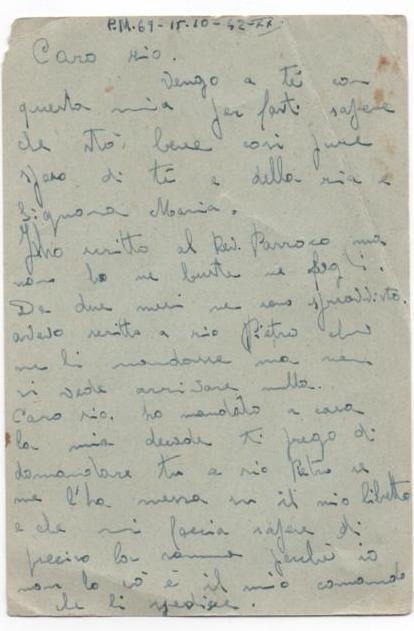 P.M. 69 - 15-10-42-XX
Caro zio.
Vengo a té con
questa mia per farti sapere
che stò bene così pure
spero di té e della zia e
Signora Maria.
scritto al Rev. Parroco ma
non ho ne buste ne fogli.
Da due mesi ne sono sprovvisto.
avevo scritto a zio Pietro che
me li mandasse ma non
si vede arrivare nulla.
Caro zio. ho mandato a casa
la mia decade ti prego di
domandare tu a zio Pietro se
me l'ha messa su il mio libretto
e che mi faccia sapere di
preciso la somma perché io
non lo sò è il mio comando
che li spedisce.